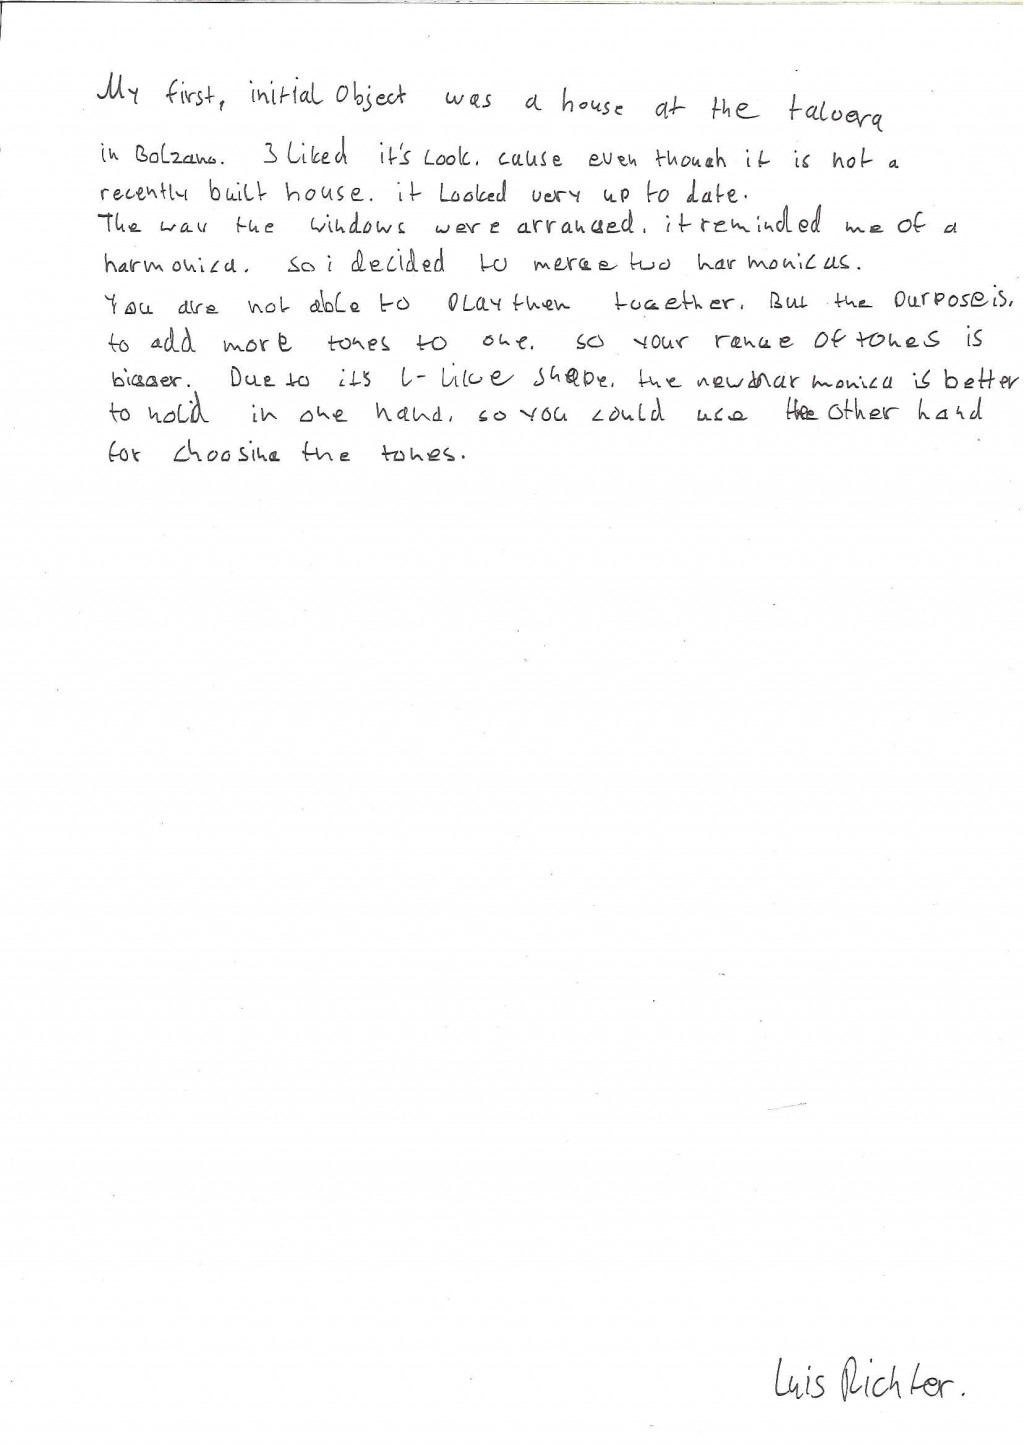 My first, initial Object was a house at the talvera
in Bolzano. I liked it's Look, cause even though it is not a
recently built house, it looked very up to date.
The way the windows were arranged, it reminded me of a
harmonica. So i decided to merge two harmonicas.
You are not able to play then together. But the purpose is,
to add more tones to one, so your range of tones is
bigger. Due to its L-like shape, the new harmonica is better
to hold in one hand, so you could use the other hand
for choosing the tones.
Luis Richter.